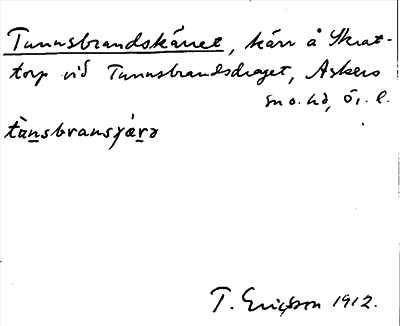 Tunnsbrandskärret, kärr å Skrat-
torp vid Tunnsbrandsdraget, Askers
sn o. hd, Ör. l.
tànsbransɟárə
T. Ericsson 1912.